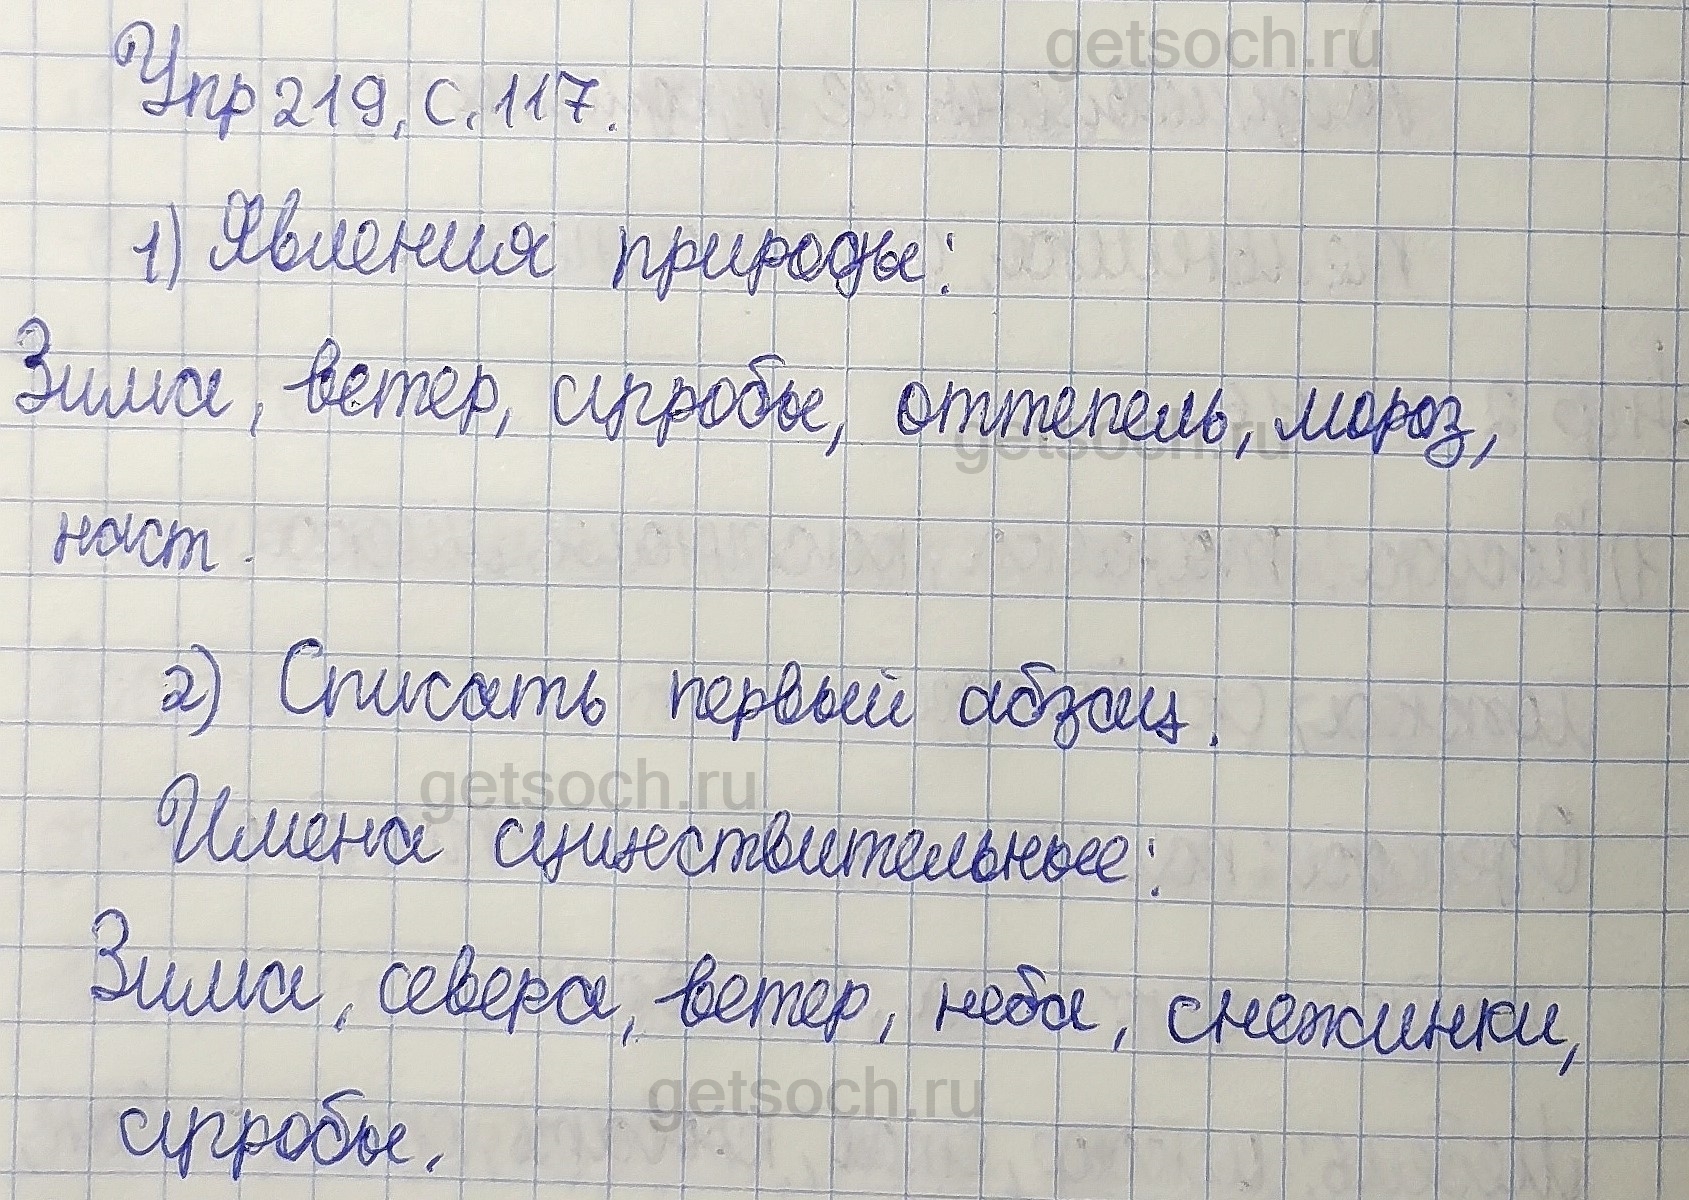 getsoch.ru
Упр 219, с. 117.
1) Явления природы:
Зима, ветер, сугробы, оттепель, мороз,
getsoch.ru
наст.
2) Списать первый абзац.
getsoch.ru
Имена существительные:
Зима, севера, ветер, неба, снежинки,
getsoch.ru
сугробы.